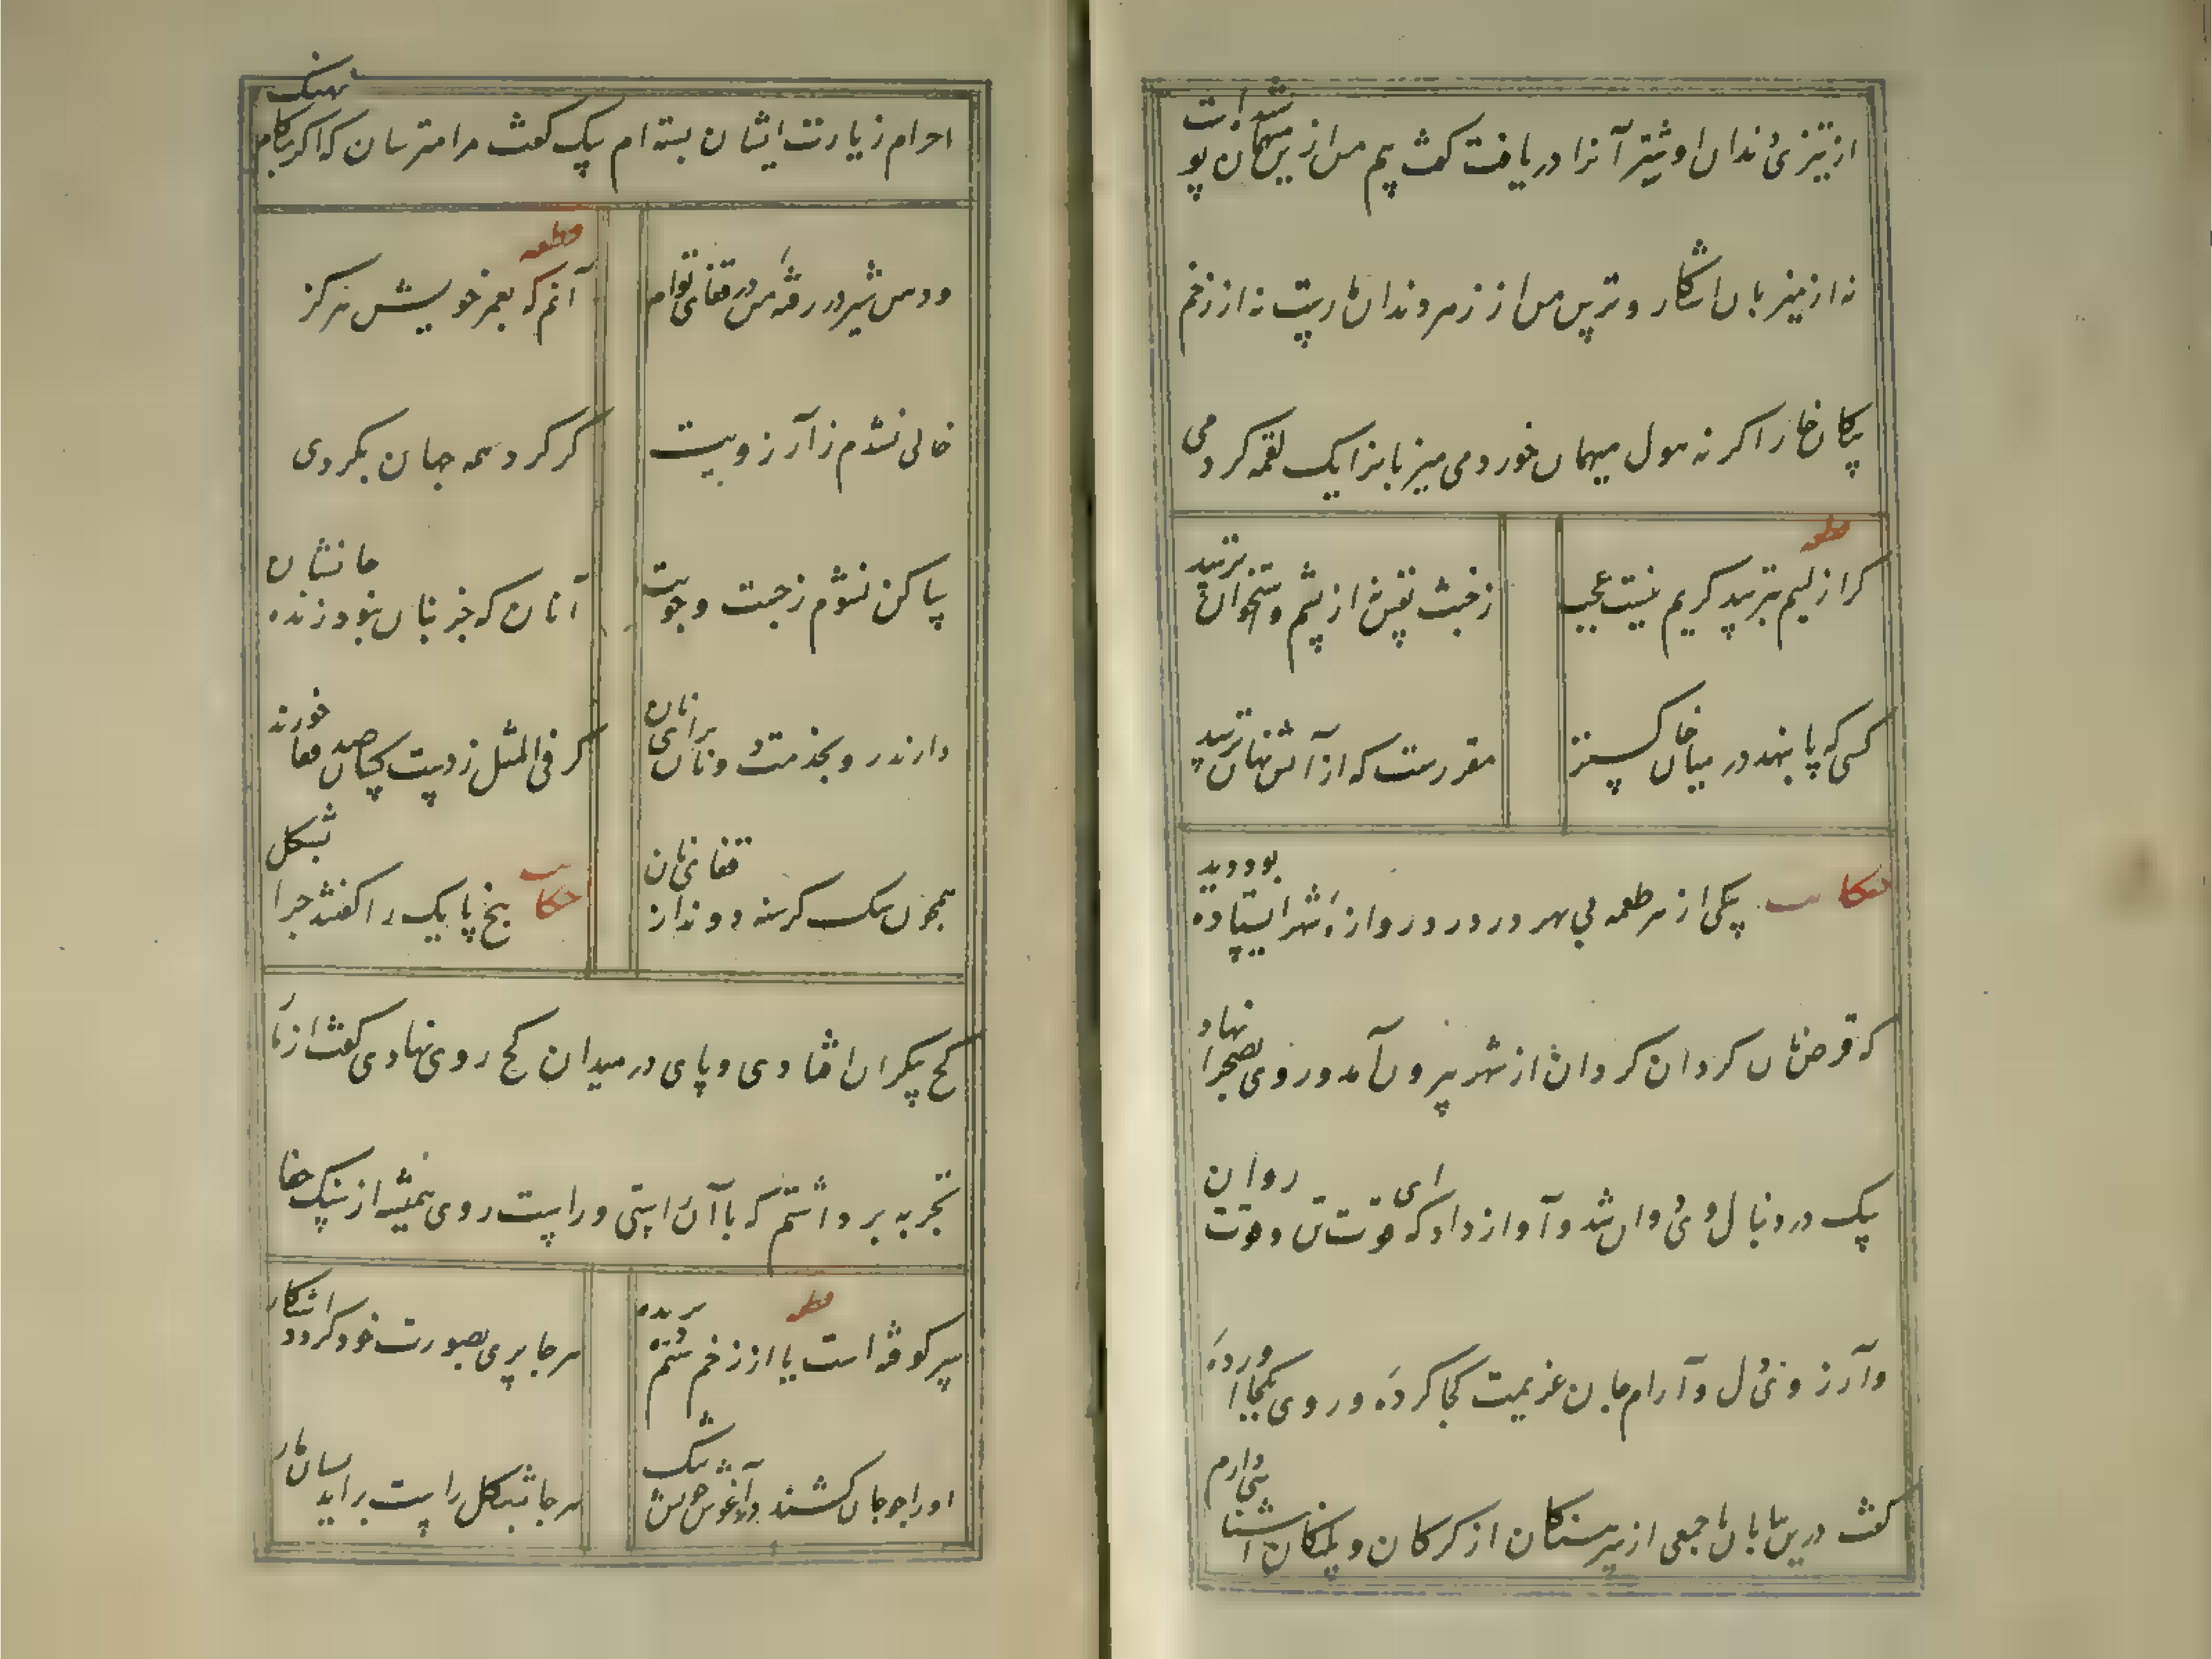 از تیزی دندان او شتر آنرا دریافت گفت بیم من ازین مهمان پوشیده است
نه از میزبان آشکار و ترس من از زهر دندان مارست نه از زخم
پیکان خار اگر نه هول میهمان خوردمی میزبانرا یک لقمه کردمی
قطعه
گر از لئیم بترسد کریم نیست عجب
ز خبث نفس نه از پشم و استخوان ترسد
کسی که پا ننهد در میان خاکستر
مقررست که از آتش نهان ترسد
حکایت سگی از بهر طعمه بی بهر در در دروازه شهر ایستاده بود دید
که قرص نان گردان گردان از شهر بیرون آمد و روی بصحرا نهاد
سگ در دنبال وی دوان شد و آواز داد که ای قوت تن و قوت روان
و آرزوی دل و آرام جان عزیمت کجا کرده و روی بکجا آورده
گفت درین بیابان با جمعی از سرهنگان از گرگان و پلنگان آشنائی دارم
احرام زیارت ایشان بسته ام سگ گفت مرا مترسان که اگر بکام نهنگ
و دهن شیر در رفته من در قفای توام
قطعه
آنم که بعمر خویش هرگز
خالی نشدم ز آرزویت
گر گرد همه جهان بگردی
ساکن نشوم ز جست و جویت
آنان که جز بنان نبود زنده جانشان
دارند رو بخدمت دونان برای نان
گر فی المثل ز دست کسان صد قفا خورند
همچون سگ گرسنه دوند از قفای نان
حکایت پنج پایک را گفتند چرا بشکل
کج پیکران افتادی و پای در میدان کج روی نهادی گفت از مار
تجربه برداشتم که با آن راستی و راست روی همیشه از سنگ جفا
قطعه
سر کوفته است یا از زخم ستم دم بریده
هر جا پری بصورت خود گردد آشکار
او را چو جان کشند در آغوش خویش تنگ
هر جا بشکل راست برآید بسان مار